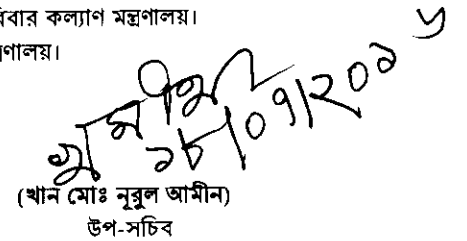 রিবার কল্যাণ মন্ত্রণালয়।
ত্রণালয়।
১৮/০৭/২০১৬
(খান মোঃ নূরুল আমীন)
উপ-সচিব